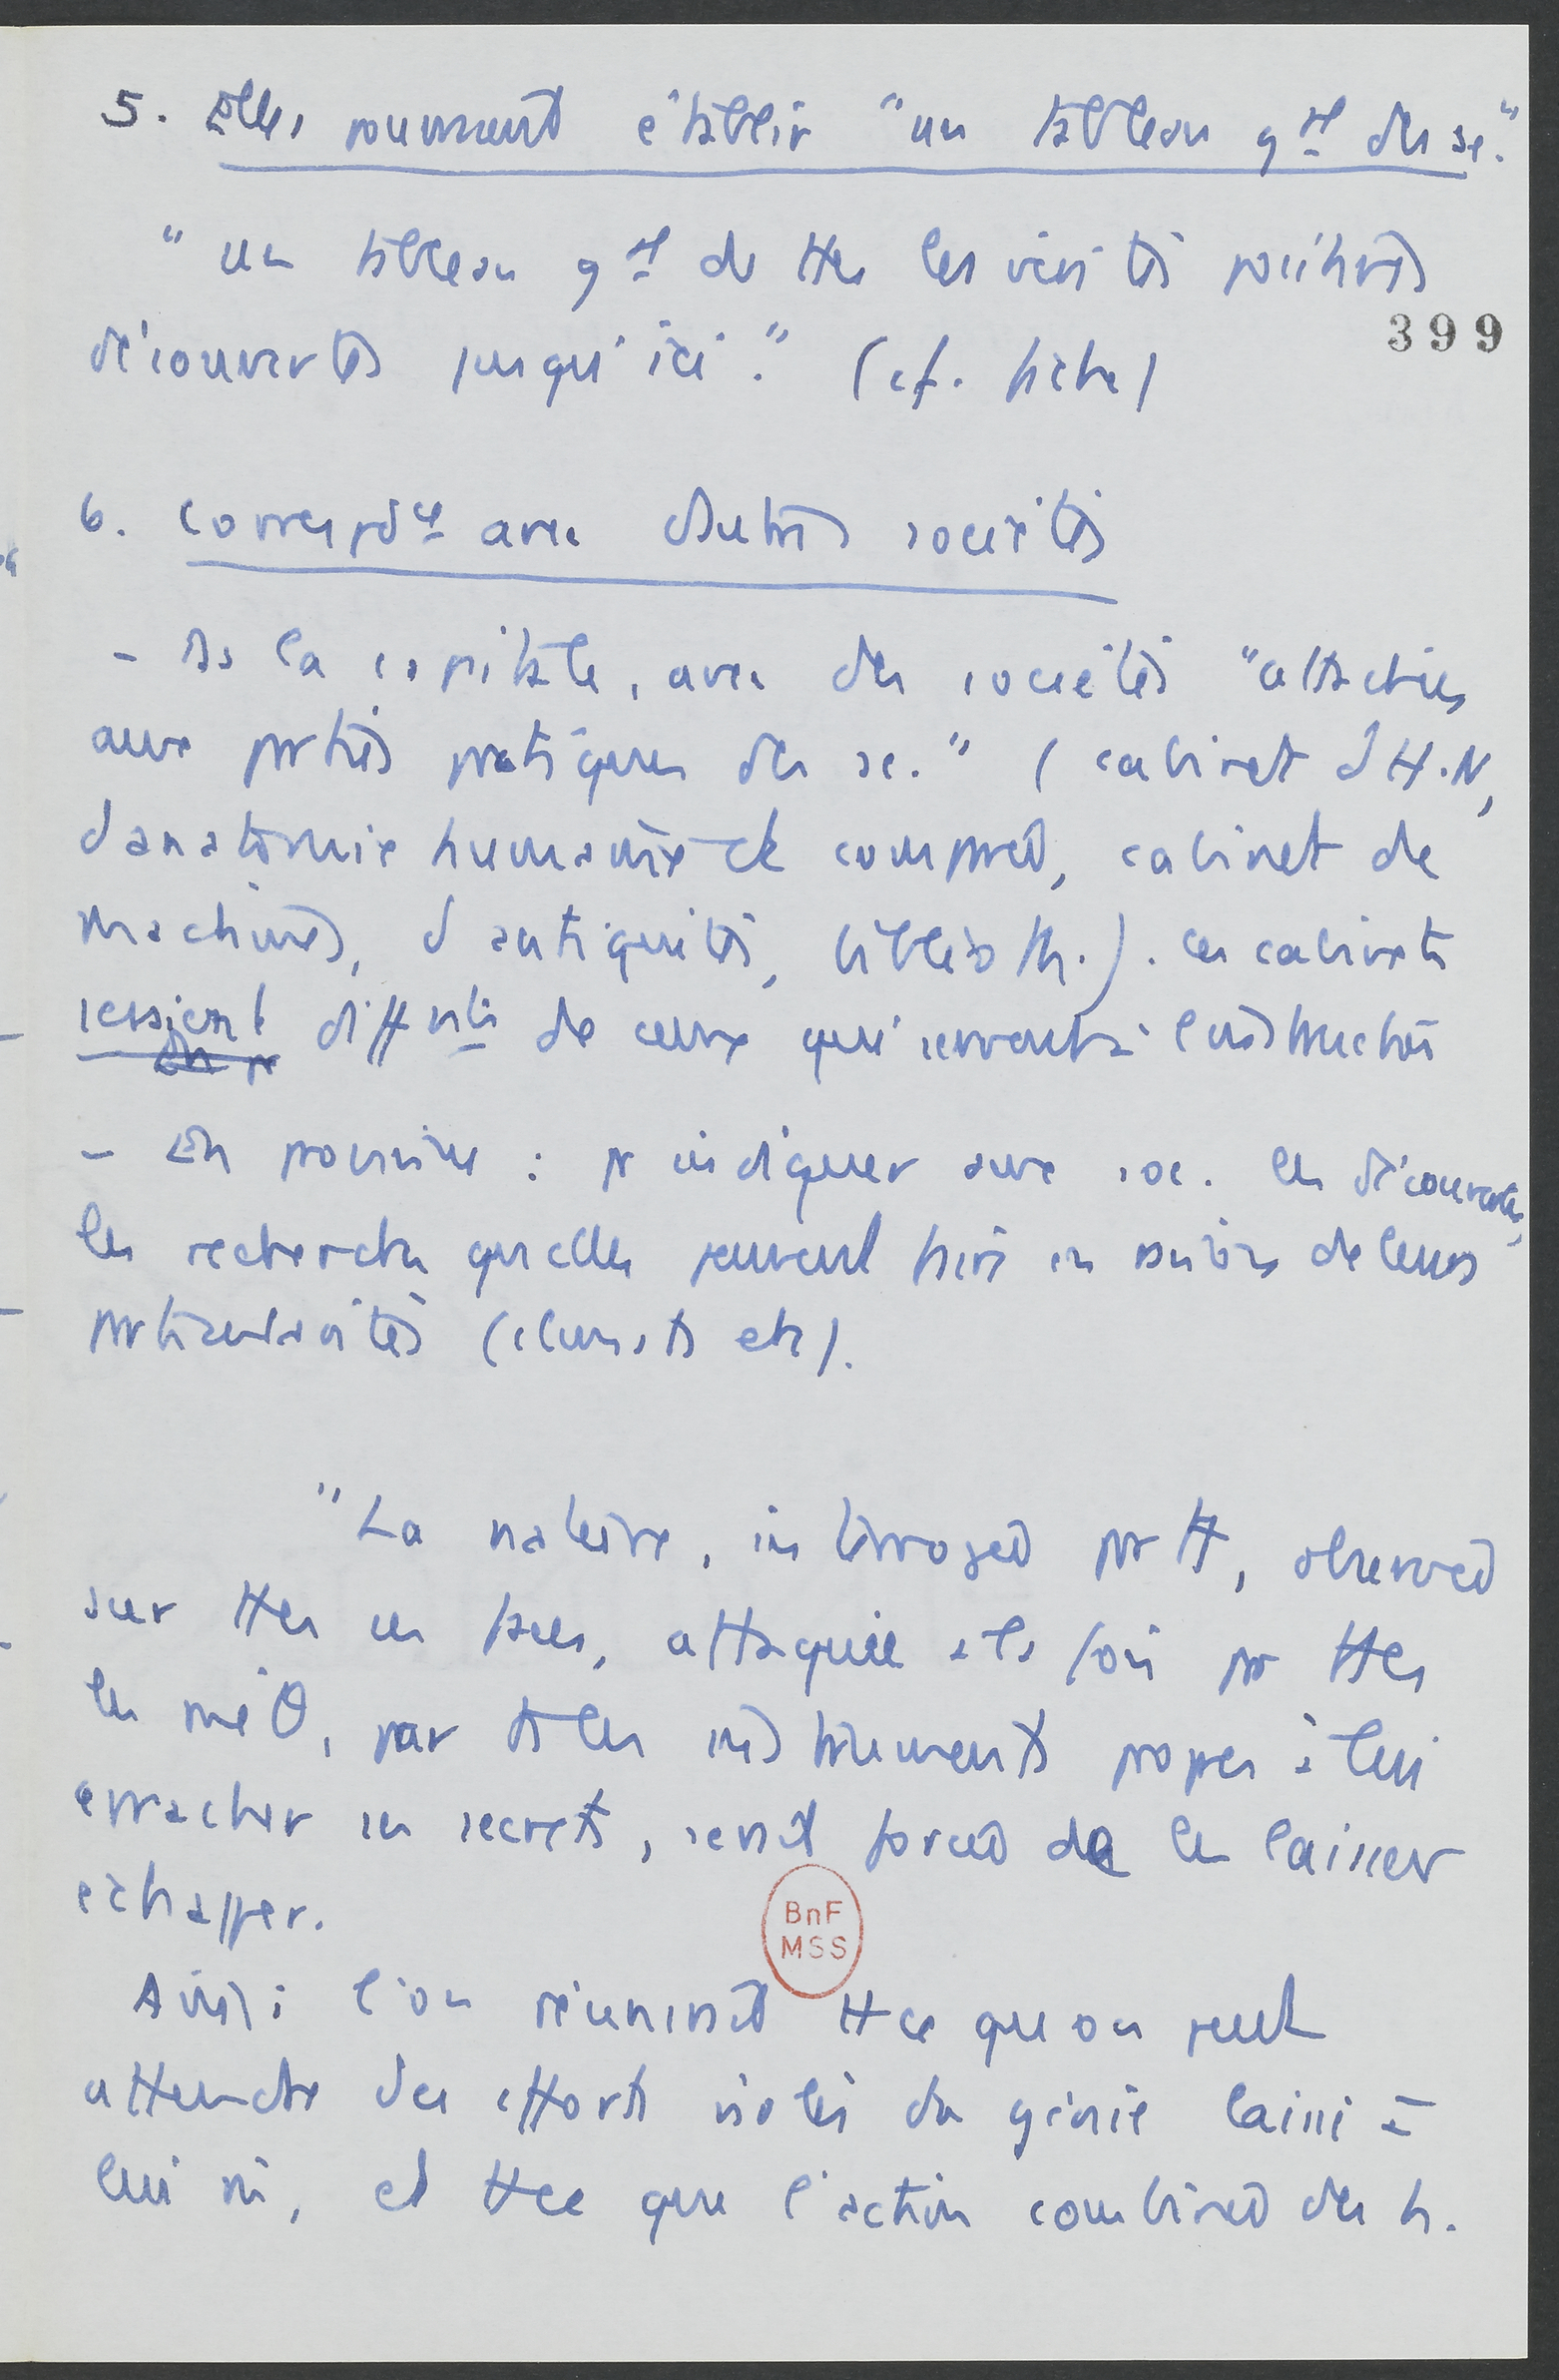 5. Elles pourront établir "un tableau gal des sc."
"un tableau gal de ttes les vérités positives
399
découvertes jusqu'ici." (cf. fiche)
6. Correspdce avec d'autres sociétés
- Ds la capitale, avec des sociétés "attachées
aux parties pratiques des sc." (cabinet d'H.N,
d'anatomie humaine et comparée, cabinet de
machines, d'antiquités, biblioth.). Ces cabinets
seraient différts de ceux qui servent à l'instruction
- En province : pr indiquer aux soc. les découvertes,
les recherches qu'elles peuvent faire en raison de leurs
particularités (climats etc).
"La nature, interrogée partt, observée
sur ttes ses faces, attaquée à la fois par ttes
les méθ, par ts les instruments propres à lui
arracher ses secrets, serait forcée de les laisser
échapper.
Ainsi l'on réunirait tt ce qu'on peut
attendre des efforts isolés du génie laissé à
lui m̂, et tt ce que l'action combinée des h.
BnF
MSS